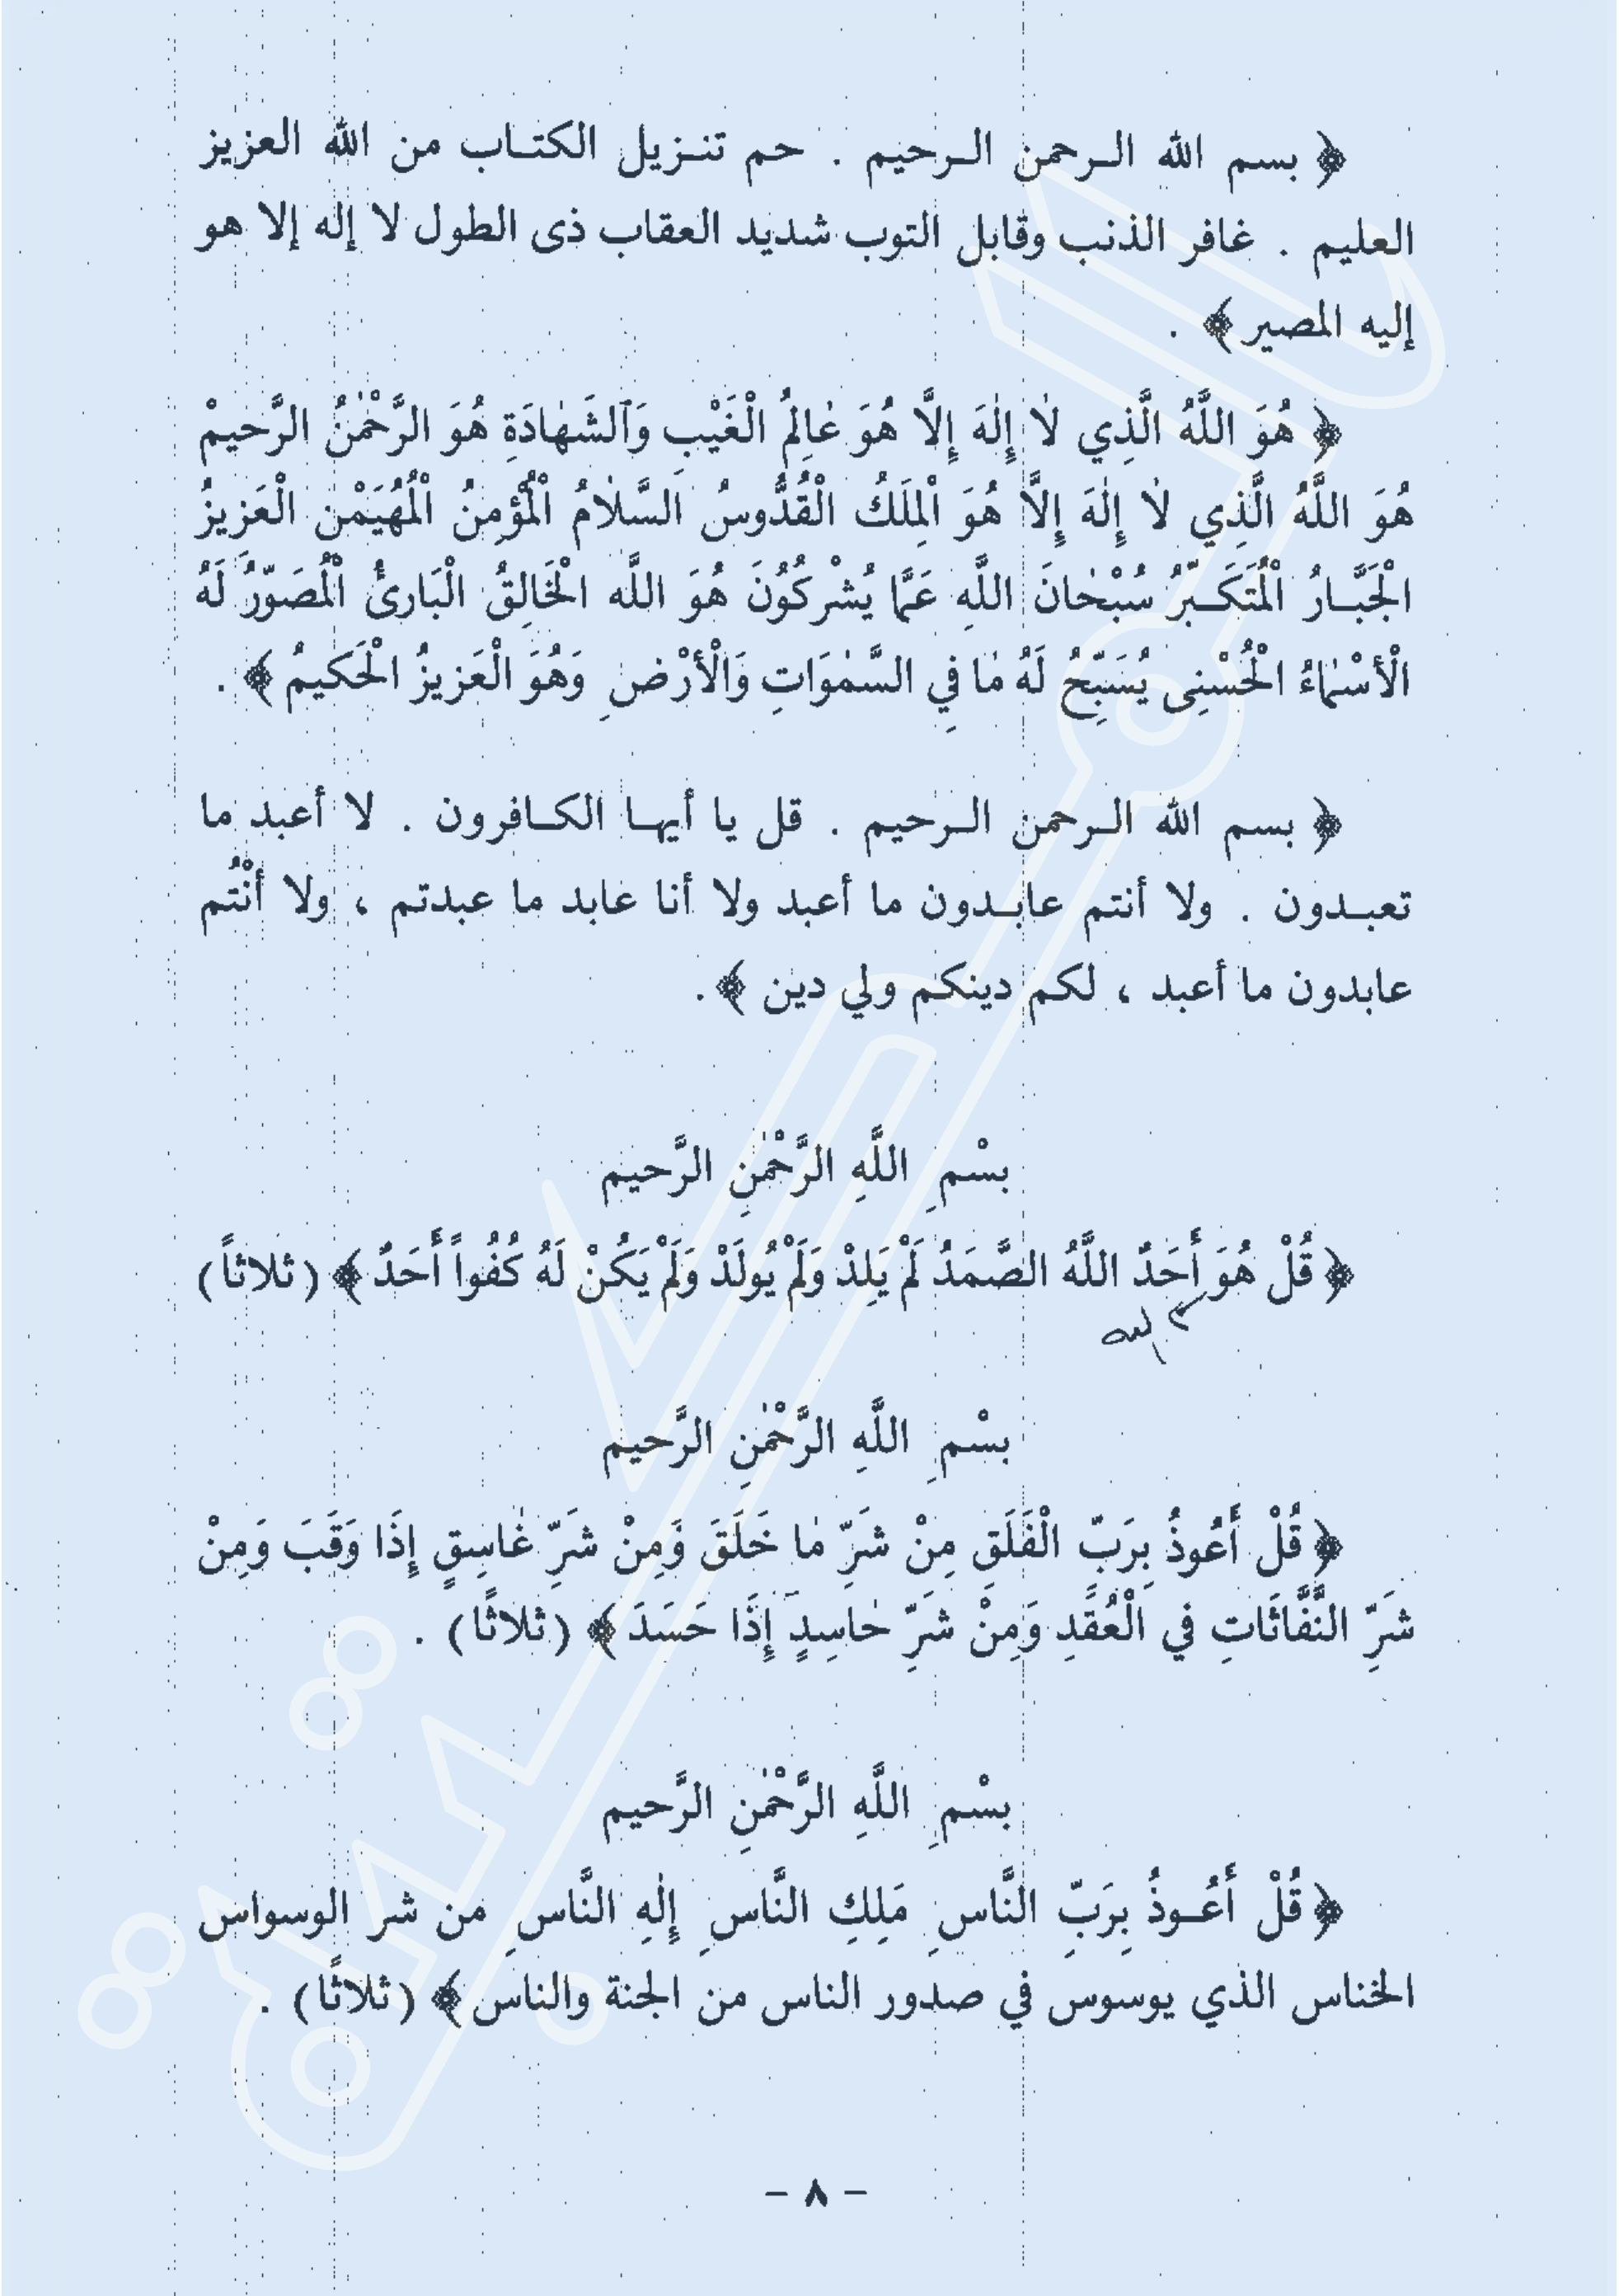 ﴿ بسم الله الـرحمن الـرحيم . حم تنـزيل الكتـاب من الله العزيز
العليم . غافر الذنب وقابل التوب شديد العقاب ذى الطول لا إله إلا هو
إليه المصير ﴾ .
﴿ هُوَ اللَّهُ الَّذِي لاٰ إِلٰهَ إِلَّا هُوَ عٰالِمُ الْغَيْبِ وَٱلشَهٰادَةِ هُوَ الرَّحْمٰنُ الرَّحيمْ
هُوَ اللَّهُ الَّذِي لاٰ إِلٰهَ إِلَّا هُوَ اْلمِلَكُ الْقُدُّوسُ السَّلاٰمُ اْلمُؤْمِنُ اْلمُهَيَمْنِ الْعَزيزُ
الْجَبَّـارُ اْلمُتَكَـبّرُ سُبْحٰانَ اللَّهِ عَمَّا يُشْرِكُوُنَ هُوَ اللَّه الْخَالِقُ الْبَارئُ اْلمُصَوّرُ لَهُ
الْأسْمٰاءُ الْحُسْنِى يُسَبِّحُ لَهُ مٰا فِي السَّمٰوَاتِ وَالْأرْضِ وَهُوَ الْعَزيزُ الْحَكيمُ ﴾ .
﴿ بسم الله الـرحمن الـرحيم . قل يا أيهـا الكـافرون . لا أعبد ما
تعبـدون . ولا أنتم عابـدون ما أعبد ولا أنا عابد ما عبدتم ، ولا أنْتُم
عابدون ما أعبد ، لكم دينكم ولي دين ﴾ .
بسْمِ اللَّهِ الرَّحْمٰنِ الرَّحيم
﴿ قُلْ هُوَ أَحَدٌ اللَّهُ الصَّمَدُ لَمْ يَلِدْ وَلَمْ يُولَدْ وَلَمْ يَكُنْ لَهُ كُفُواً أَحَدٌ ﴾ (ثلاثاً)
الله
بسْمِ اللَّهِ الرَّحْمٰنِ الرَّحيم
﴿ قُلْ أَعُوذُ بِرَبّ الْفَلَقِ مِنْ شَرِّ مٰا خَلَقَ وَمِنْ شَرِّ غٰاسِقٍ إِذَا وَقَبَ وَمِنْ
شَرِّ النَّفَّاثَاتِ في الْعُقَدِ وَمِنْ شَرِّ حٰاسِدٍ إِذَا حَسَدَ ﴾ (ثلاثًا) .
بسْمِ اللَّهِ الرَّحْمٰنِ الرَّحيم
﴿ قُلْ أَعُـوذُ بِرَبِّ النَّاسِ مَلِكِ النَّاسِ إِلٰهِ النَّاسِ من شر الوسواس
الخناس الذي يوسوس في صدور الناس من الجنة والناس ﴾ (ثلاثًا) .
– ٨ –